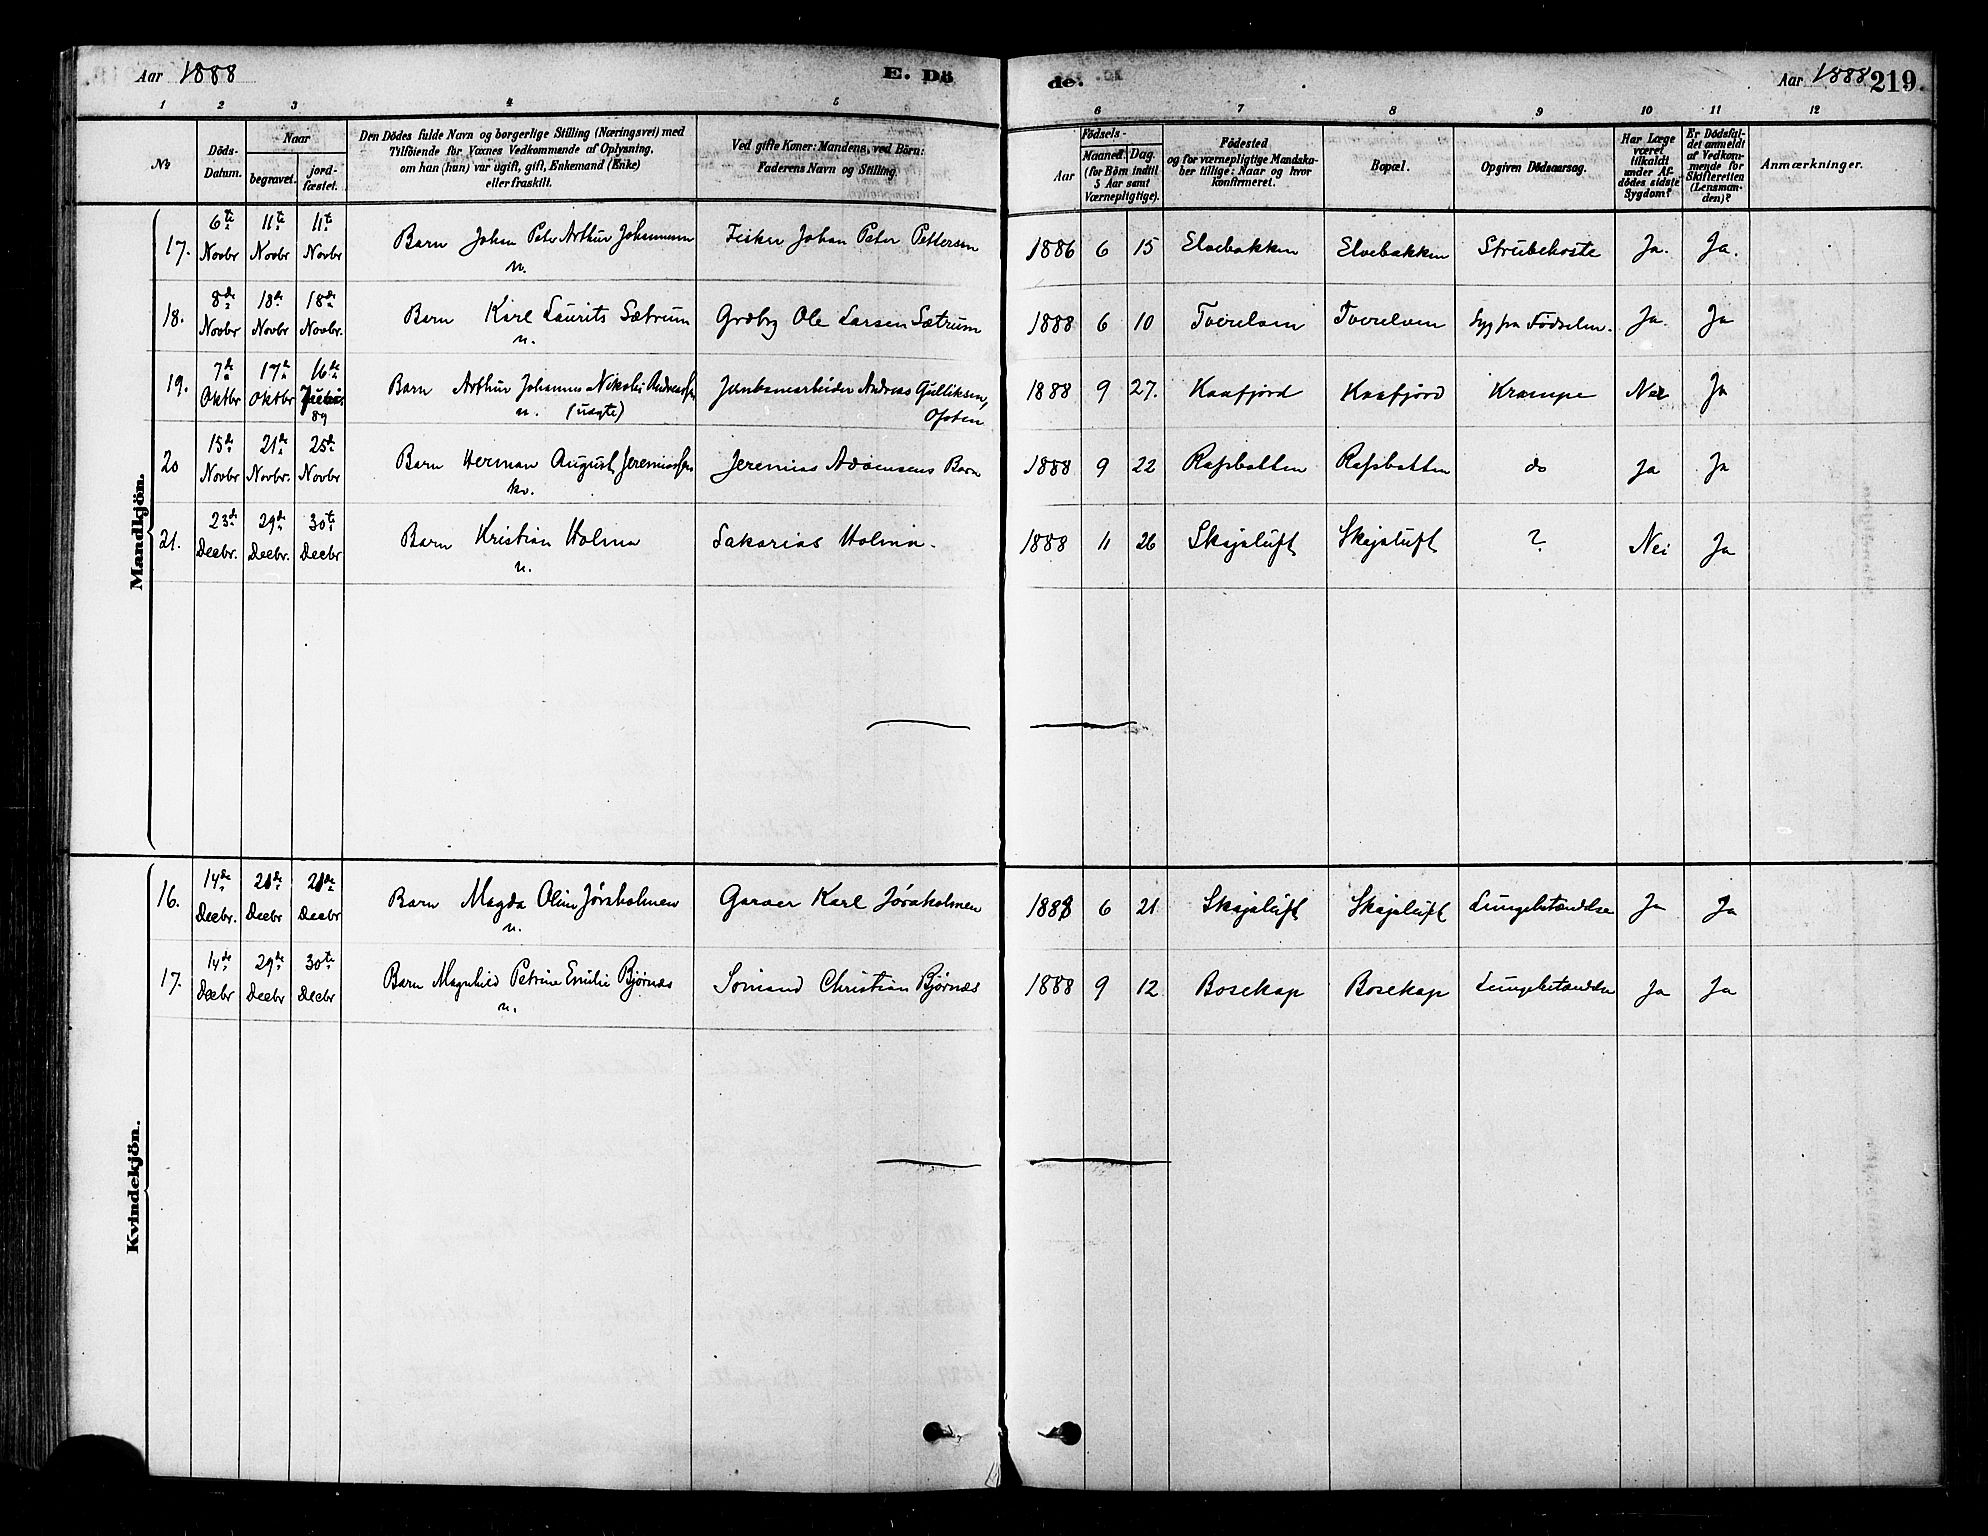 Aar 1888 E. Dö de. Aar 1888 219.
1 2 3 4 5 6 7 8 9 10 11 12
No
Döds-Datum.
Naar
begravet. jord-fæstet.
Den Dödes fulde Navn og borgerlige Stilling (Næringsvei) med
Tilföiende for Voxnes Vedkommende af Oplysning,
om han (hun) var ugift, gift, Enkemand (Enke)
eller fraskilt.
Ved gifte Koner: Mandens, ved Börn:
Faderens Navn og Stilling.
Födsels-
Aar Maaned. Dag.
(for Börn indtil
5 Aar samt
Værnepligtige).
Födested
og for værnepligtige Mandska-
ber tillige: Naar og hvor
konfirmeret.
Bopæl.
Opgiven Dödsaarsag.
Har Læge
været
tilkaldt
under Af-
dödes sidste
Sygdom?
Er Dödsfal-
det anmeldt
af Vedkom-
mende for
Skifteretten
(Lensman-
den)?
Anmærkninger.
Mandkjön.
17. 6te Novbr 11te Novbr 11te Novbr Barn Johan Peter Arthur Johannesen Fisker Johan Peter Pettersen 1886 6 15 Elvebakken Elvebakken Strubehoste Ja. Ja.
n.
18. 8de Novbr 18de Novbr 18de Novbr. Barn Karl Laurits Sætrum Grdbg Ole Larsen Sætrum 1888 6 10 Tverelven Tverelven Syg fra Födselen. Ja. Ja
n.
19. 7de Oktbr 17de Oktbr 16de 89 Barn Arthur Johannes Nikolai Andreassen Andreas Gulliksen, 1888 9 27. Kaafjord Kaafjord Krampe Nei Ja
n. (uægte) Ofoten
20 15de Novbr 21de Novbr. 25de Novbr Barn Herman August Jeremiassen Jeremias Adamsens Barn 1888 9 22 Rafsbotten Rafsbotten do Ja Ja
kv.
21. 23de Decbr. 29de Decbr. 30te Decbr Barn Kristian Holma Sakarias Holma. 1888 11 26 Skajaluft Skajaluft ? Nei Ja
n.
Kvindekjön.
16. 14de Decbr. 21de Decbr 21de Decbr Barn Magda Oline Jöraholmen Garver Karl Jöraholmen 1888 6 21 Skajaluft Skajaluft Lungebetændelse Ja Ja
n.
17. 14de Decbr 29de Decbr 30te Decbr Barn Magnhild Petrine Emilie Bjørnæs Sömand Christian Bjørnæs 1888 9 12 Bosekop Bosekop Lungebetændelse Ja Ja
n.